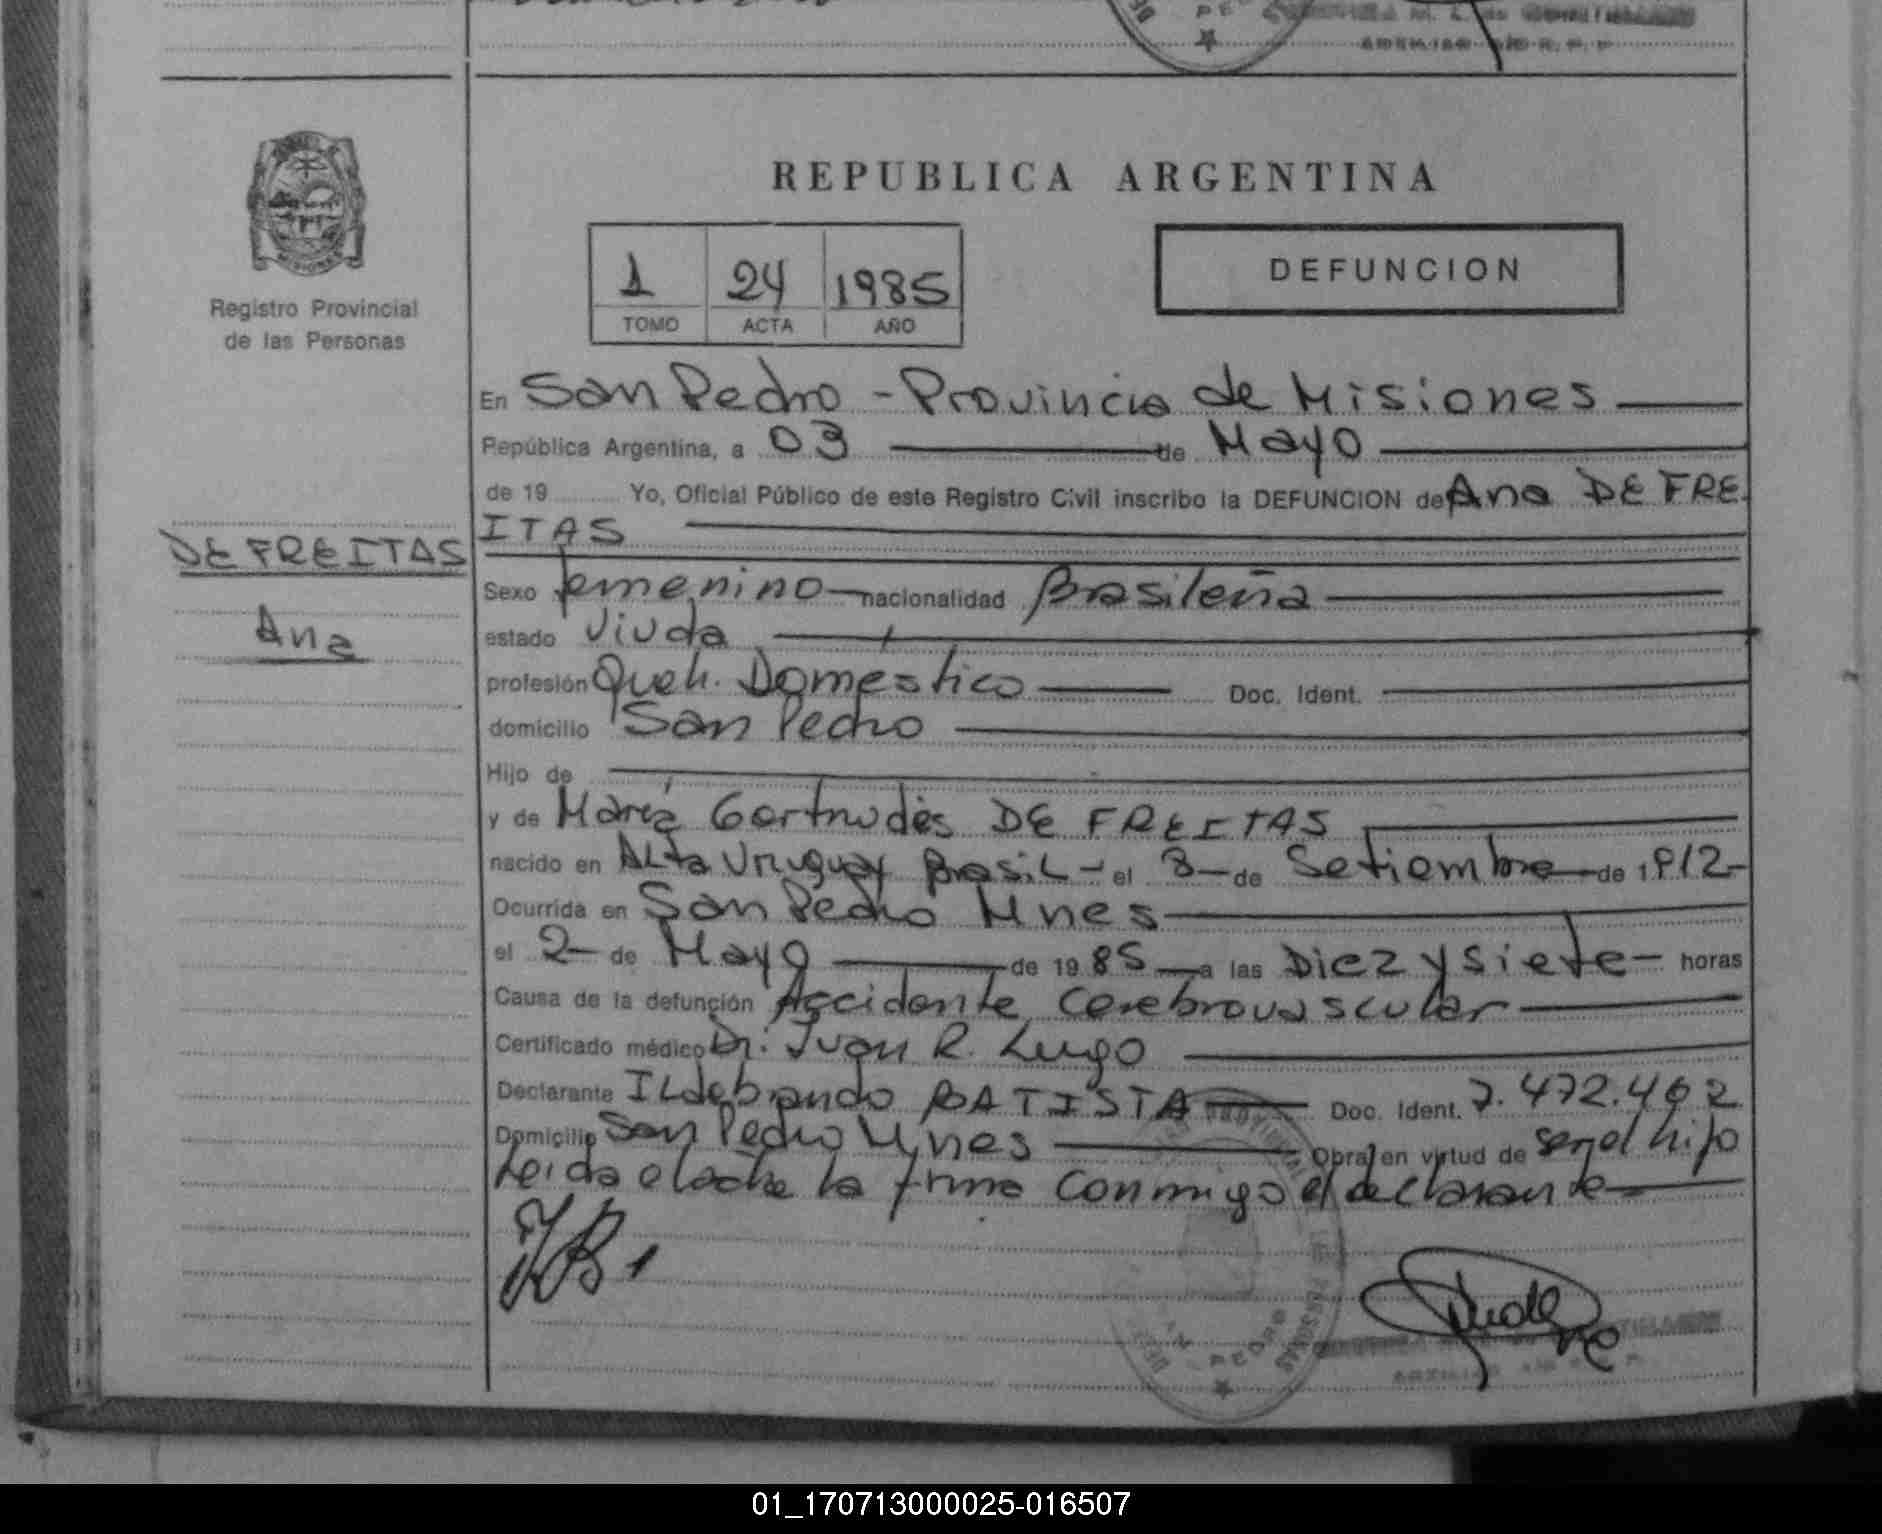 REPUBLICA ARGENTINA
Registro Provincial
de las Personas
1 24 1985
TOMO ACTA AÑO
DEFUNCION
En San Pedro - Provincia de Misiones
República Argentina, a 03 de Mayo
de 19 Yo, Oficial Público de este Registro Civil inscribo la DEFUNCION de Ana DE FRE
ITAS
DE FREITAS
Ana
Sexo femenino nacionalidad Brasileña
estado Viuda
profesión Queh. Doméstico Doc. Ident.
domicilio San Pedro
Hijo de
y de María Gertrudes DE FREITAS
nacido en Alta Uruguay Brasil - el 8 - de Setiembre de 1912 -
Ocurrida en San Pedro Mnes
el 2 - de Mayo de 1985 a las Diez y siete - horas
Causa de la defunción Accidente Cerebrovascular
Certificado médico Dr. Juan R. Lugo
Declarante ILdebrando BATISTA Doc. Ident. 7.472.462
Domicilio San Pedro Mnes Obra en virtud de ser el hijo
Leida el acta la firma conmigo el declarante
01_170713000025-016507